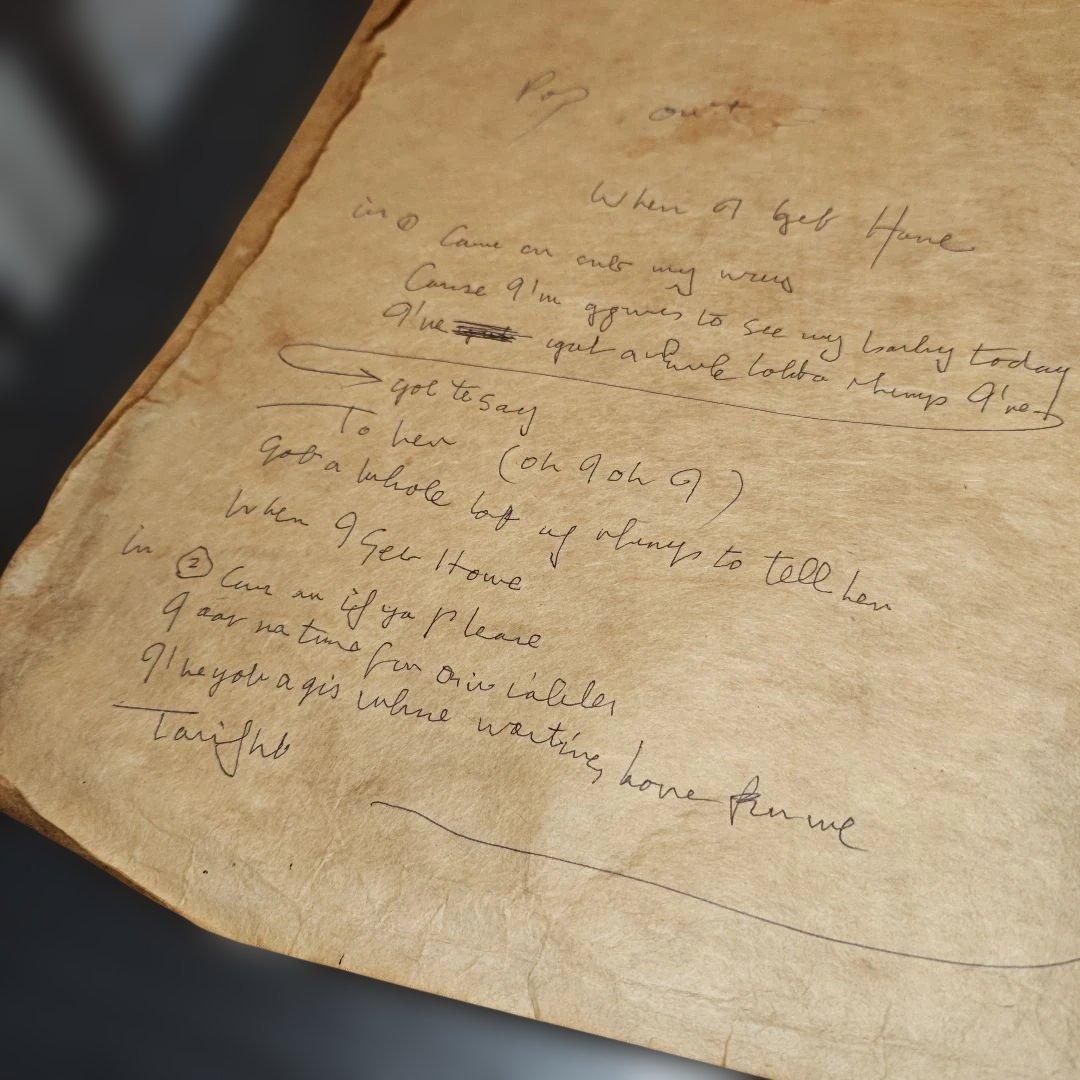 Pop out
When I Get Home
in ① Come on out my way
Cause I'm gonna to see my baby today
I've got a whole lotta things I've
got to say
To her (oh I oh I)
Got a whole lot of things to tell her
When I Get Home
in ② Come on if ya please
I got no time for
I've got a girl whos waiting home for me
Tonight